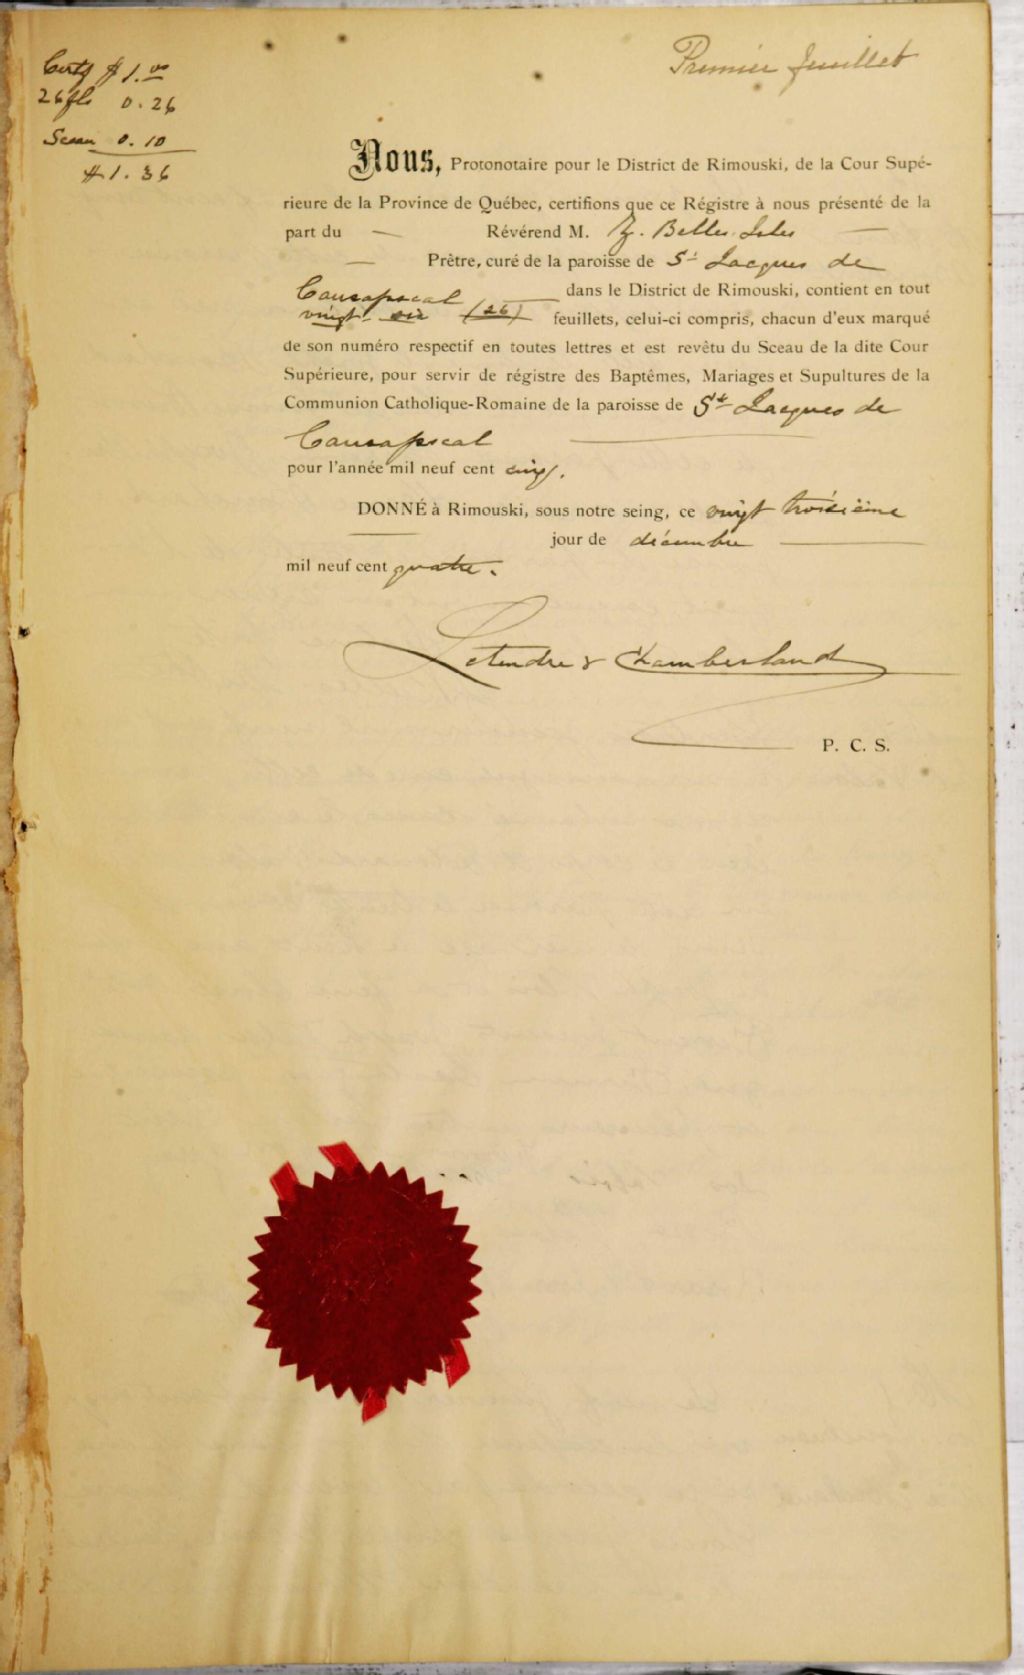 Premier feuillet
Certf $1.00
26 fls 0.26
Sceau 0.10
$1.36
Nous, Protonotaire pour le District de Rimouski, de la Cour Supé-
rieure de la Province de Québec, certifions que ce Régistre à nous présenté de la
part du — Révérend M. Z. Belles-Isles —
— Prêtre, curé de la paroisse de St Jacques de
Causapscal — dans le District de Rimouski, contient en tout
vingt-six (26) feuillets, celui-ci compris, chacun d'eux marqué
de son numéro respectif en toutes lettres et est revêtu du Sceau de la dite Cour
Supérieure, pour servir de régistre des Baptêmes, Mariages et Supultures de la
Communion Catholique-Romaine de la paroisse de St Jacques de
Causapscal —
pour l'année mil neuf cent cinq.
DONNÉ à Rimouski, sous notre seing, ce vingt troisième
— jour de décembre —
mil neuf cent quatre.
Letendre & Chamberland
P. C. S.